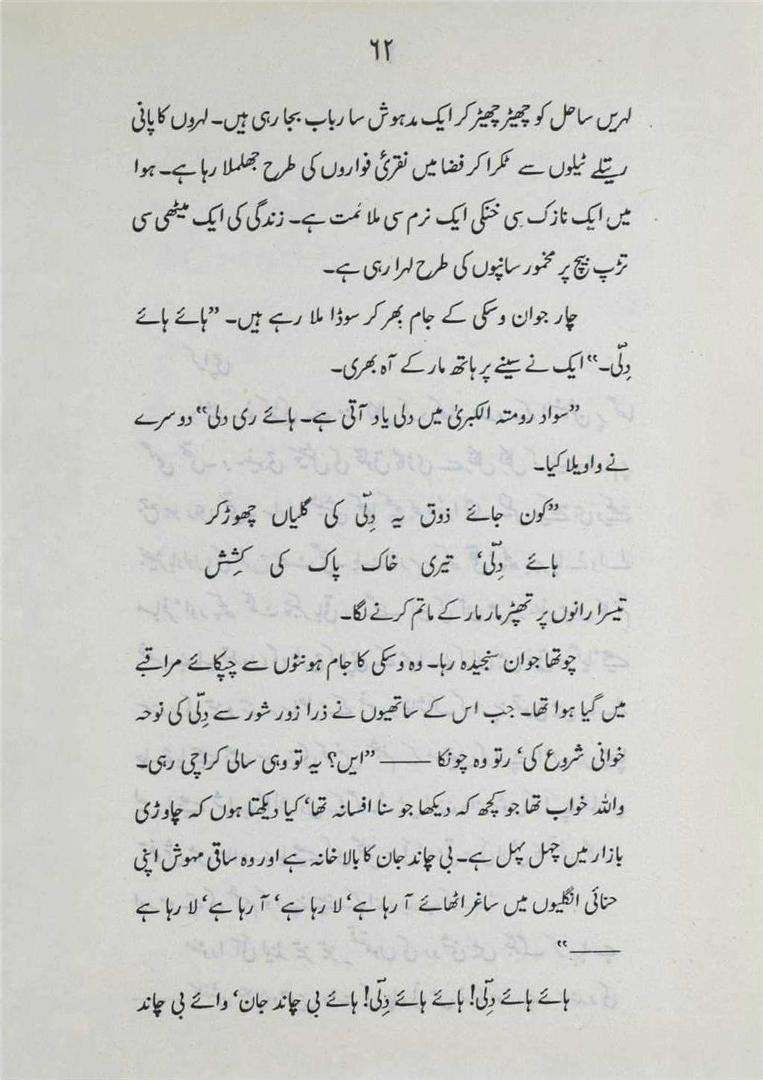 ٦٢
لہریں ساحل کو چھیڑ چھیڑ کر ایک مدہوش سا رباب بجا رہی ہیں۔ لہروں کا پانی
ریتلے ٹیلوں سے ٹکرا کر فضا میں نقرئ فواروں کی طرح جھلملا رہا ہے۔ ہوا
میں ایک نازک سی خنکی ایک نرم سی ملائمت ہے۔ زندگی کی ایک میٹھی سی
تڑپ بیچ پر مخمور سانپوں کی طرح لہرا رہی ہے۔
چار جوان وسکی کے جام بھر کر سوڈا ملا رہے ہیں۔ ”ہائے ہائے
دِلّی۔“ ایک نے سینے پر ہاتھ مار کے آہ بھری۔
”سواد رومتہ الکبریٰ میں دلی یاد آتی ہے۔ ہائے ری دلی“ دوسرے
نے واویلا کیا۔
”کون جائے ذوق یہ دِلّی کی گلیاں چھوڑ کر
ہائے دِلّی‘ تیری خاک پاک کی کشِش
تیسرا رانوں پر تھپڑ مار مار کے ماتم کرنے لگا۔
چوتھا جوان سنجیدہ رہا۔ وہ وسکی کا جام ہونٹوں سے چپکائے مراقبے
میں گیا ہوا تھا۔ جب اس کے ساتھیوں نے ذرا زور شور سے دِلّی کی نوحہ
خوانی شروع کی‘ رتو وہ چونکا —— ”ایں؟ یہ تو وہی سالی کراچی رہی۔
واللہ خواب تھا جو کچھ کہ دیکھا جو سنا افسانہ تھا‘ کیا دیکھتا ہوں کہ چاوڑی
بازار میں چہل پہل ہے۔ بی چاند جان کا بالا خانہ ہے اور وہ ساقی مہوش اپنی
حنائی انگلیوں میں ساغر اٹھائے آ رہا ہے‘ لا رہا ہے‘ آ رہا ہے‘ لا رہا ہے
——“
ہائے ہائے دِلّی! ہائے ہائے دِلّی! ہائے بی چاند جان‘ وائے بی چاند